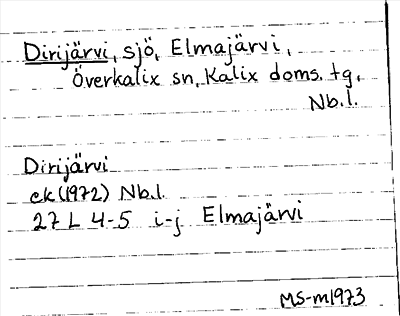 Dirijärvi, sjö, Elmajärvi,
Överkalix sn, Kalix doms. tg,
Nb.l.
Dirijärvi
ek (1972) Nb.l.
27 L 4-5 i-j Elmajärvi
MS-m1973